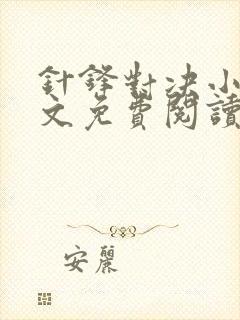 針鋒對決小
文免費閱讀
安麗